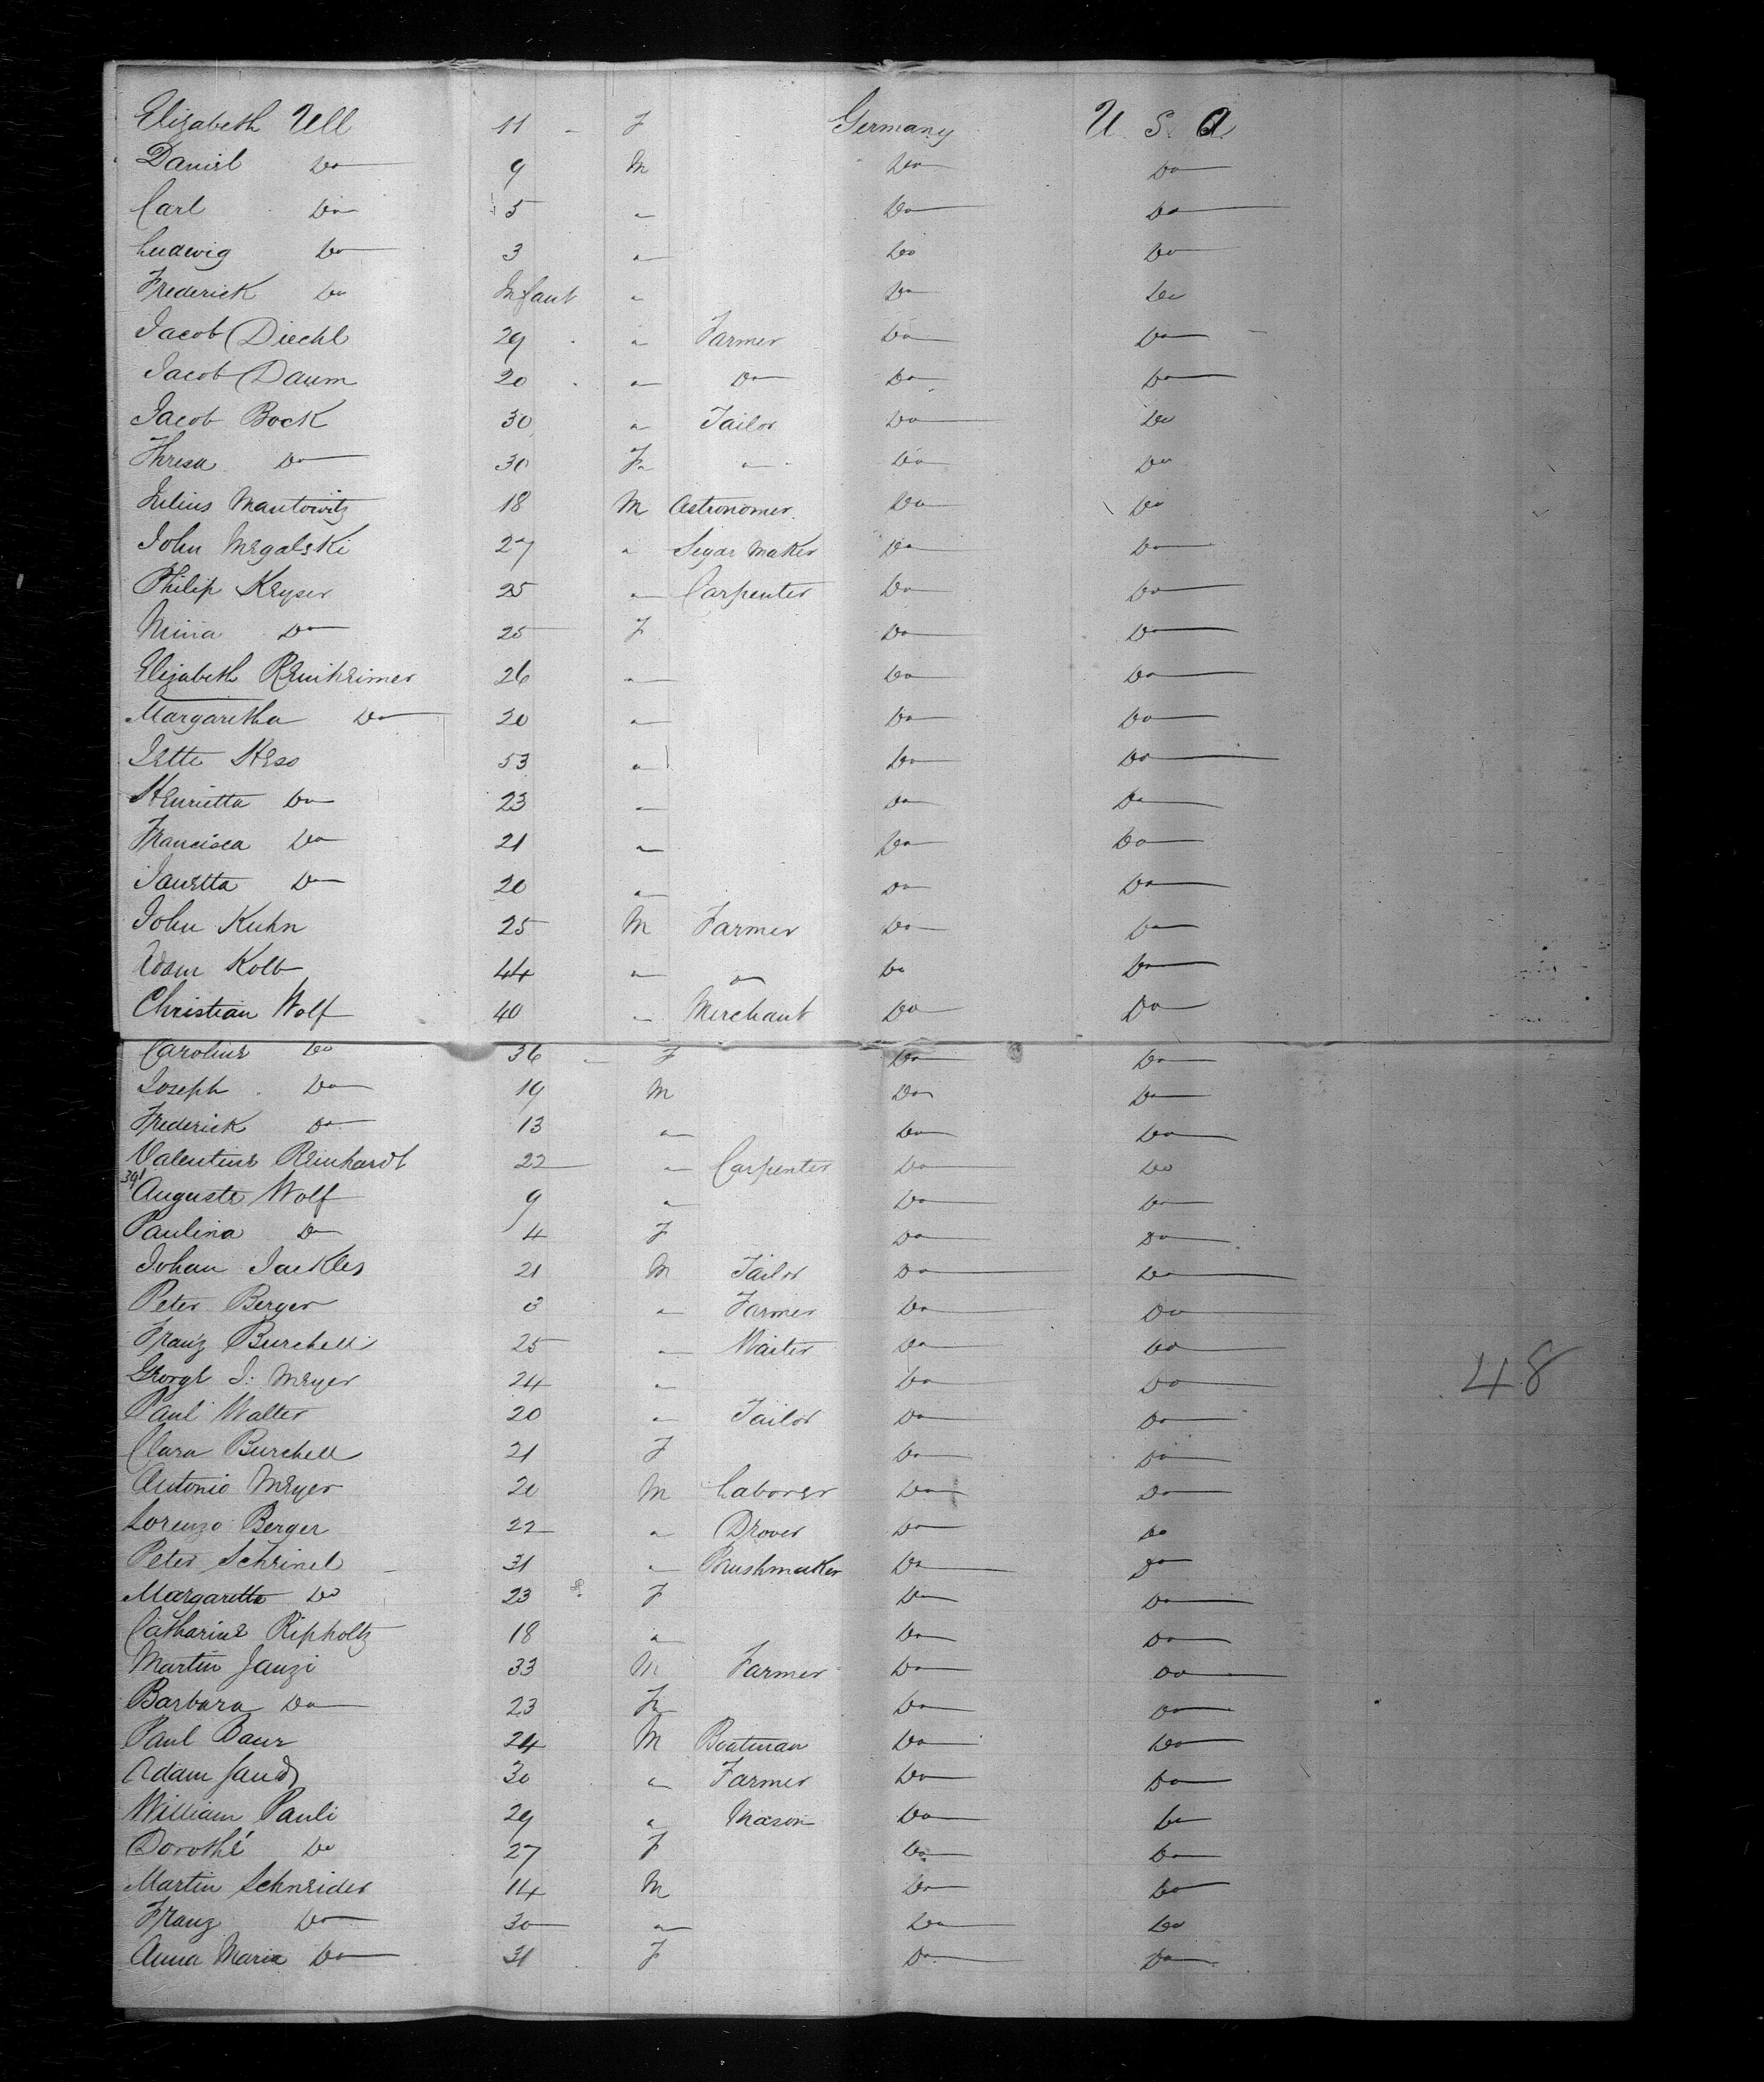 Elizabeth Ull 11 - F Germany U. S. A.
Daniel Do 9 M Do Do
Carl Do 5 " Do Do
Ludwig Do 3 " Do Do
Frederick Do Infant " Do Do
Jacob Diechl 29 " Farmer Do Do
Jacob Daum 20 " Do Do Do
Jacob Bock 30 " Tailor Do Do
Thresa Do 30 F " Do Do
Julius Mantowitz 18 M Astronomer Do Do
John Megalski 27 " Segar Maker Do Do
Philip Keyser 25 " Carpenter Do Do
Mina Do 25 F Do Do
Elizabeth Reinheimer 26 " Do Do
Margaretha Do 20 " Do Do
Jette Hess 53 " Do Do
Henrietta Do 23 " Do Do
Francisca Do 21 " Do Do
Janetta Do 20 " Do Do
John Kuhn 25 M Farmer Do Do
Adam Kolb 44 " " Do Do
Christian Wolf 40 " Merchant Do Do
Caroline Do 36 F Do Do
Joseph Do 19 M Do Do
Frederick Do 13 " Do Do
Valentine Reinhardt 22 " Carpenter Do Do
391 Auguste Wolf 9 " Do Do
Paulina Do 4 F Do Do
Johan Jackles 21 M Tailor Do Do
Peter Berger 3 " Farmer Do Do
Franz Burchell 25 " Waiter Do Do
George J. Meyer 24 " Do Do
48
Paul Walter 20 " Tailor Do Do
Clara Burchell 21 F Do Do
Antonio Meyer 20 M Laborer Do Do
Lorenzo Berger 22 " Drover Do Do
Peter Schrinel 31 " Brushmaker Do Do
Margaretta Do 23 F Do Do
Catharine Ripholtz 18 " Do Do
Martin Janzi 33 M Farmer Do Do
Barbara Do 23 F Do Do
Paul Baur 24 M Boatman Do Do
Adam 30 " Farmer Do Do
William Pauli 29 " Mason Do Do
Dorothé Do 27 F Do Do
Martin Schneider 14 M Do Do
Franz Do 30 " Do Do
Anna Maria Do 31 F Do Do